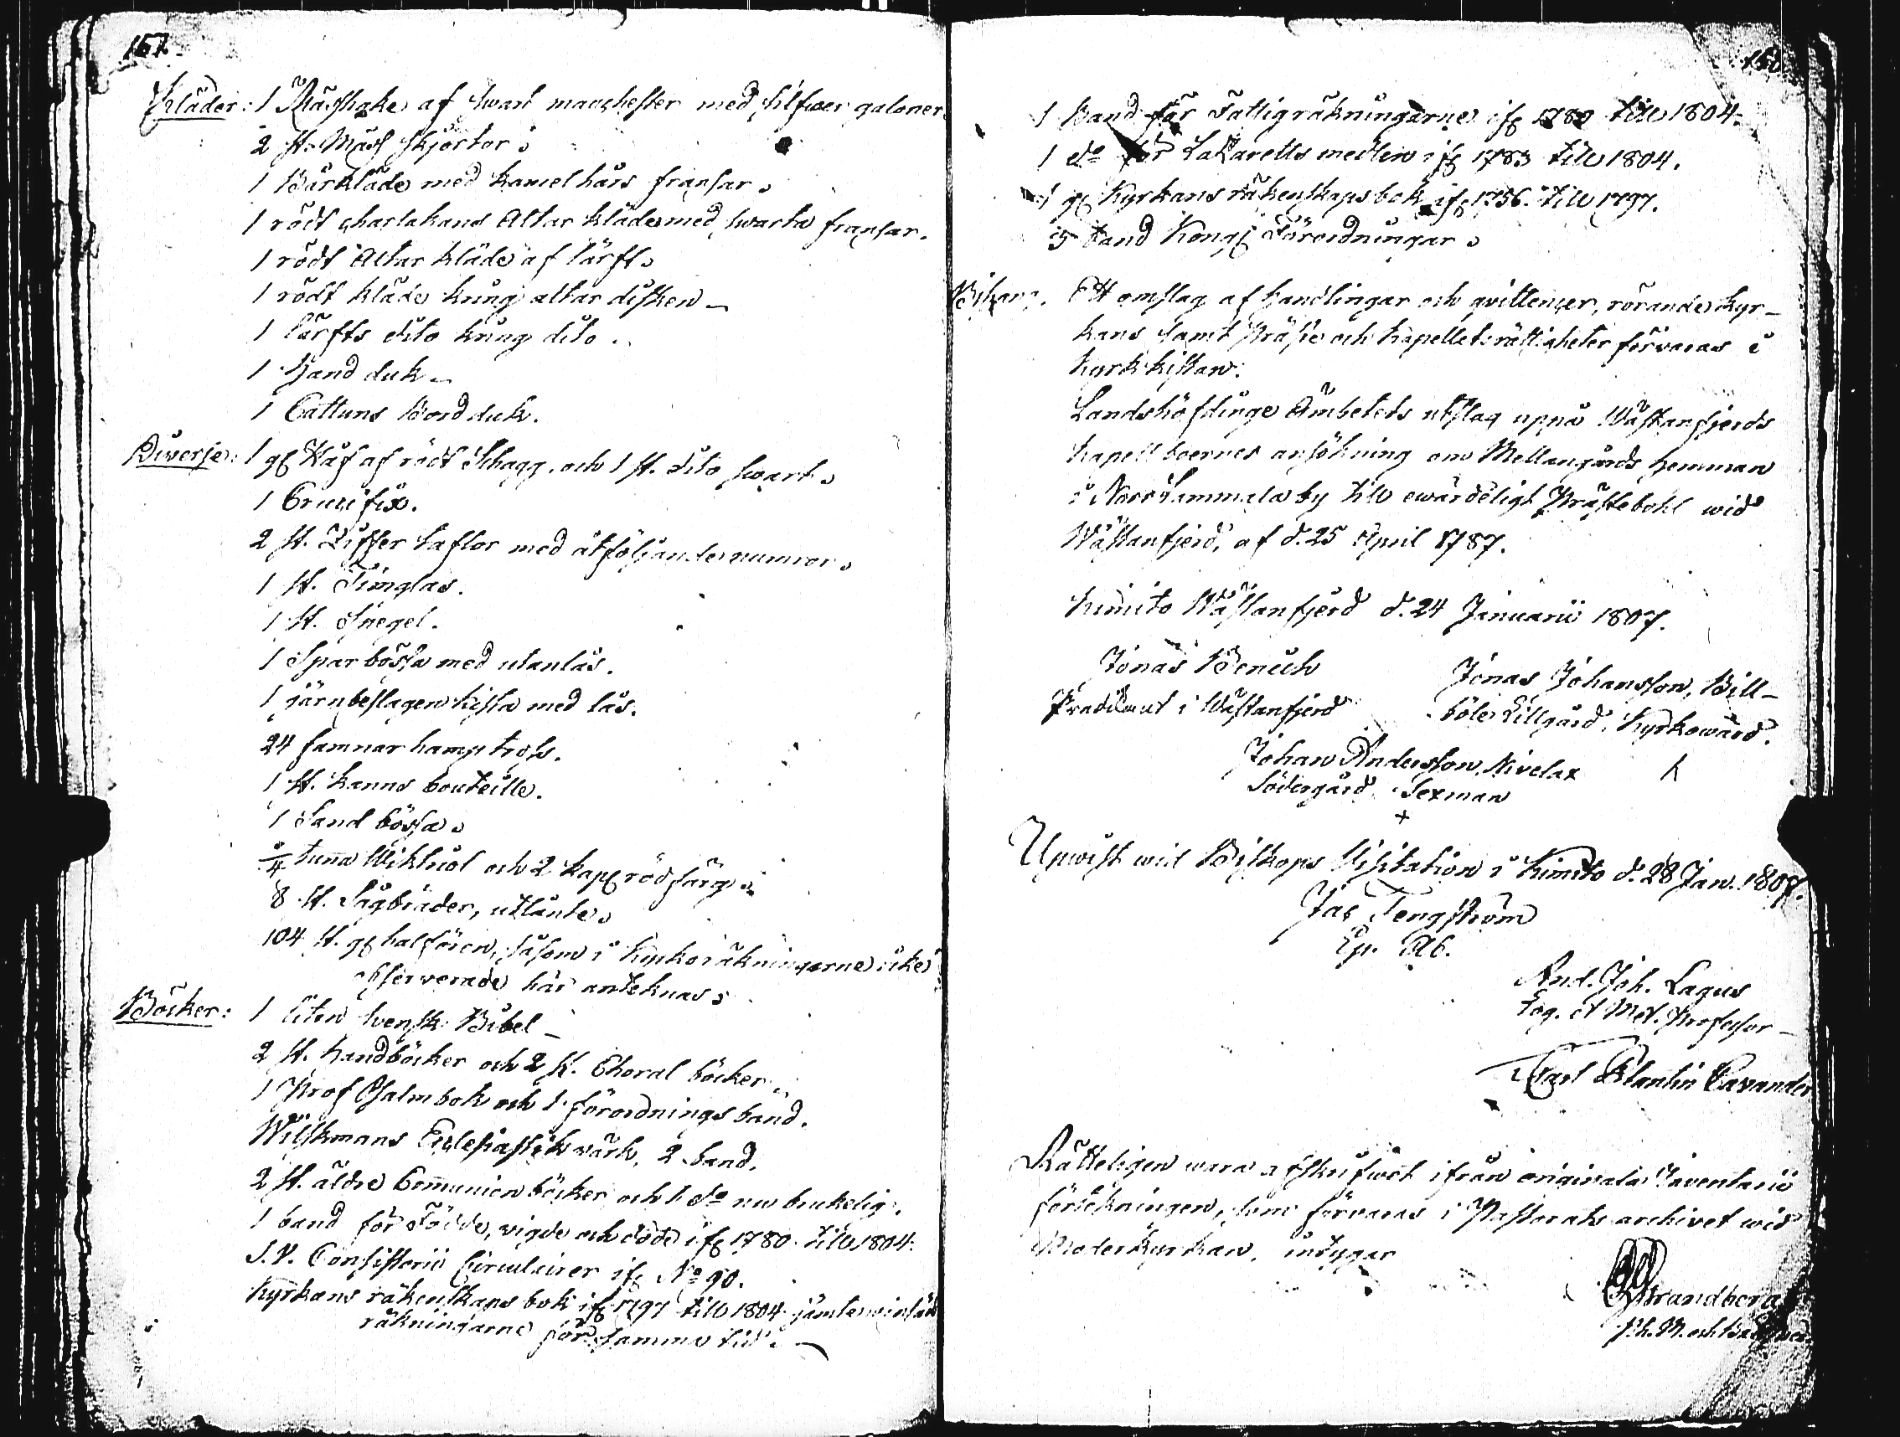 157.
Kläder: 1 Mässhake af swart manchester med silfwer galoner
2 st. Mäss skjortor.
1 Bårkläde med kamelhårs fransar.
1 rödt scharlakans Altar kläde med swarta fransar.
1 rödt Altar kläde af lärft.
1 rödt kläde kring altar disken
1 lärfts dito kring dito.
1 Hand duk
1 Cattuns Bord duk.
Diverse: 1 gl Håf af rödt Schagg. och 1 st. dito swart.
1 Crucifix.
2 st. Ziffer taflor med åtföljande numror.
1 st. Timglas.
1 st. Spegel.
1 Sparbössa med utanlås.
1 järnbeslagen kista med lås.
24 famnar hamp tross.
1 st. kanns bouteille.
1 Sand bössa.
tunna Wiktriol och 2 kapp rödfärg
8 st. Sågbräder, utlånte.
104 st. gl som i Kyrkoräkningarne icke
observerade här anteknas:
Böcker: 1 liten swensk Bibel
2 st. handböcker och 2 st. Choral böcker.
1 Prof Psalmbok och 1 förordnings band.
Wilskmans Ecclesiastik värk, 2 band.
2 st. äldre Communion böcker och 1 do nu brukelig.
1 band för Födde, vigde och döde ifr 1780 till 1804.
S.V. Consistorii Circulairer ifr No 90.
Kyrkans räkenskaps bok ifr 1797 till 1804 jämte
räkningarne för samma tid.
158
1 Band för Fattigräkningarne ifr 1780 till 1804.
1 do för Lazaretts medlen ifr 1783 till 1804.
1 gl Kyrkans räkenskaps bok ifr 1756 till 1797.
5 band Kongl Förordningar.
Ett omslag af handlingar och qvittencer, rörande kyr-
kans samt Präste och kapellets rättigheter förvaras i
kyrk kistan.
Landshöfdinge Ämbetets utslag uppå Wästanfjerds
kapell boernes ansökning om Mellangårds hemman
i Norrlammala by till ewärdeligt Prästebohl wid
Wästanfjerd, af d. 25 April 1787.
Kimito Wästanfjerd d. 24 Januarii 1807.
Jonas
Predikant i Wästanfjerd
Jonas Johansson, Bill-
böle Lillgård, kyrkowärd.
Johan Andersson, Nivelax
Södergård Sexman
Upwist wid Biskops Visitation i Kimito d. 28 Jan. 1807.
Jac Tengström
Ep. Ab.
And. Joh. Lagus
Log. et Met. Professor
Carl Cavander
Rätteligen wara afskrifwet ifrån originala Inventarii
förtekningen, som förvaras i Pastorats archivet wid
Moderkyrkan, intygar
Strandberg